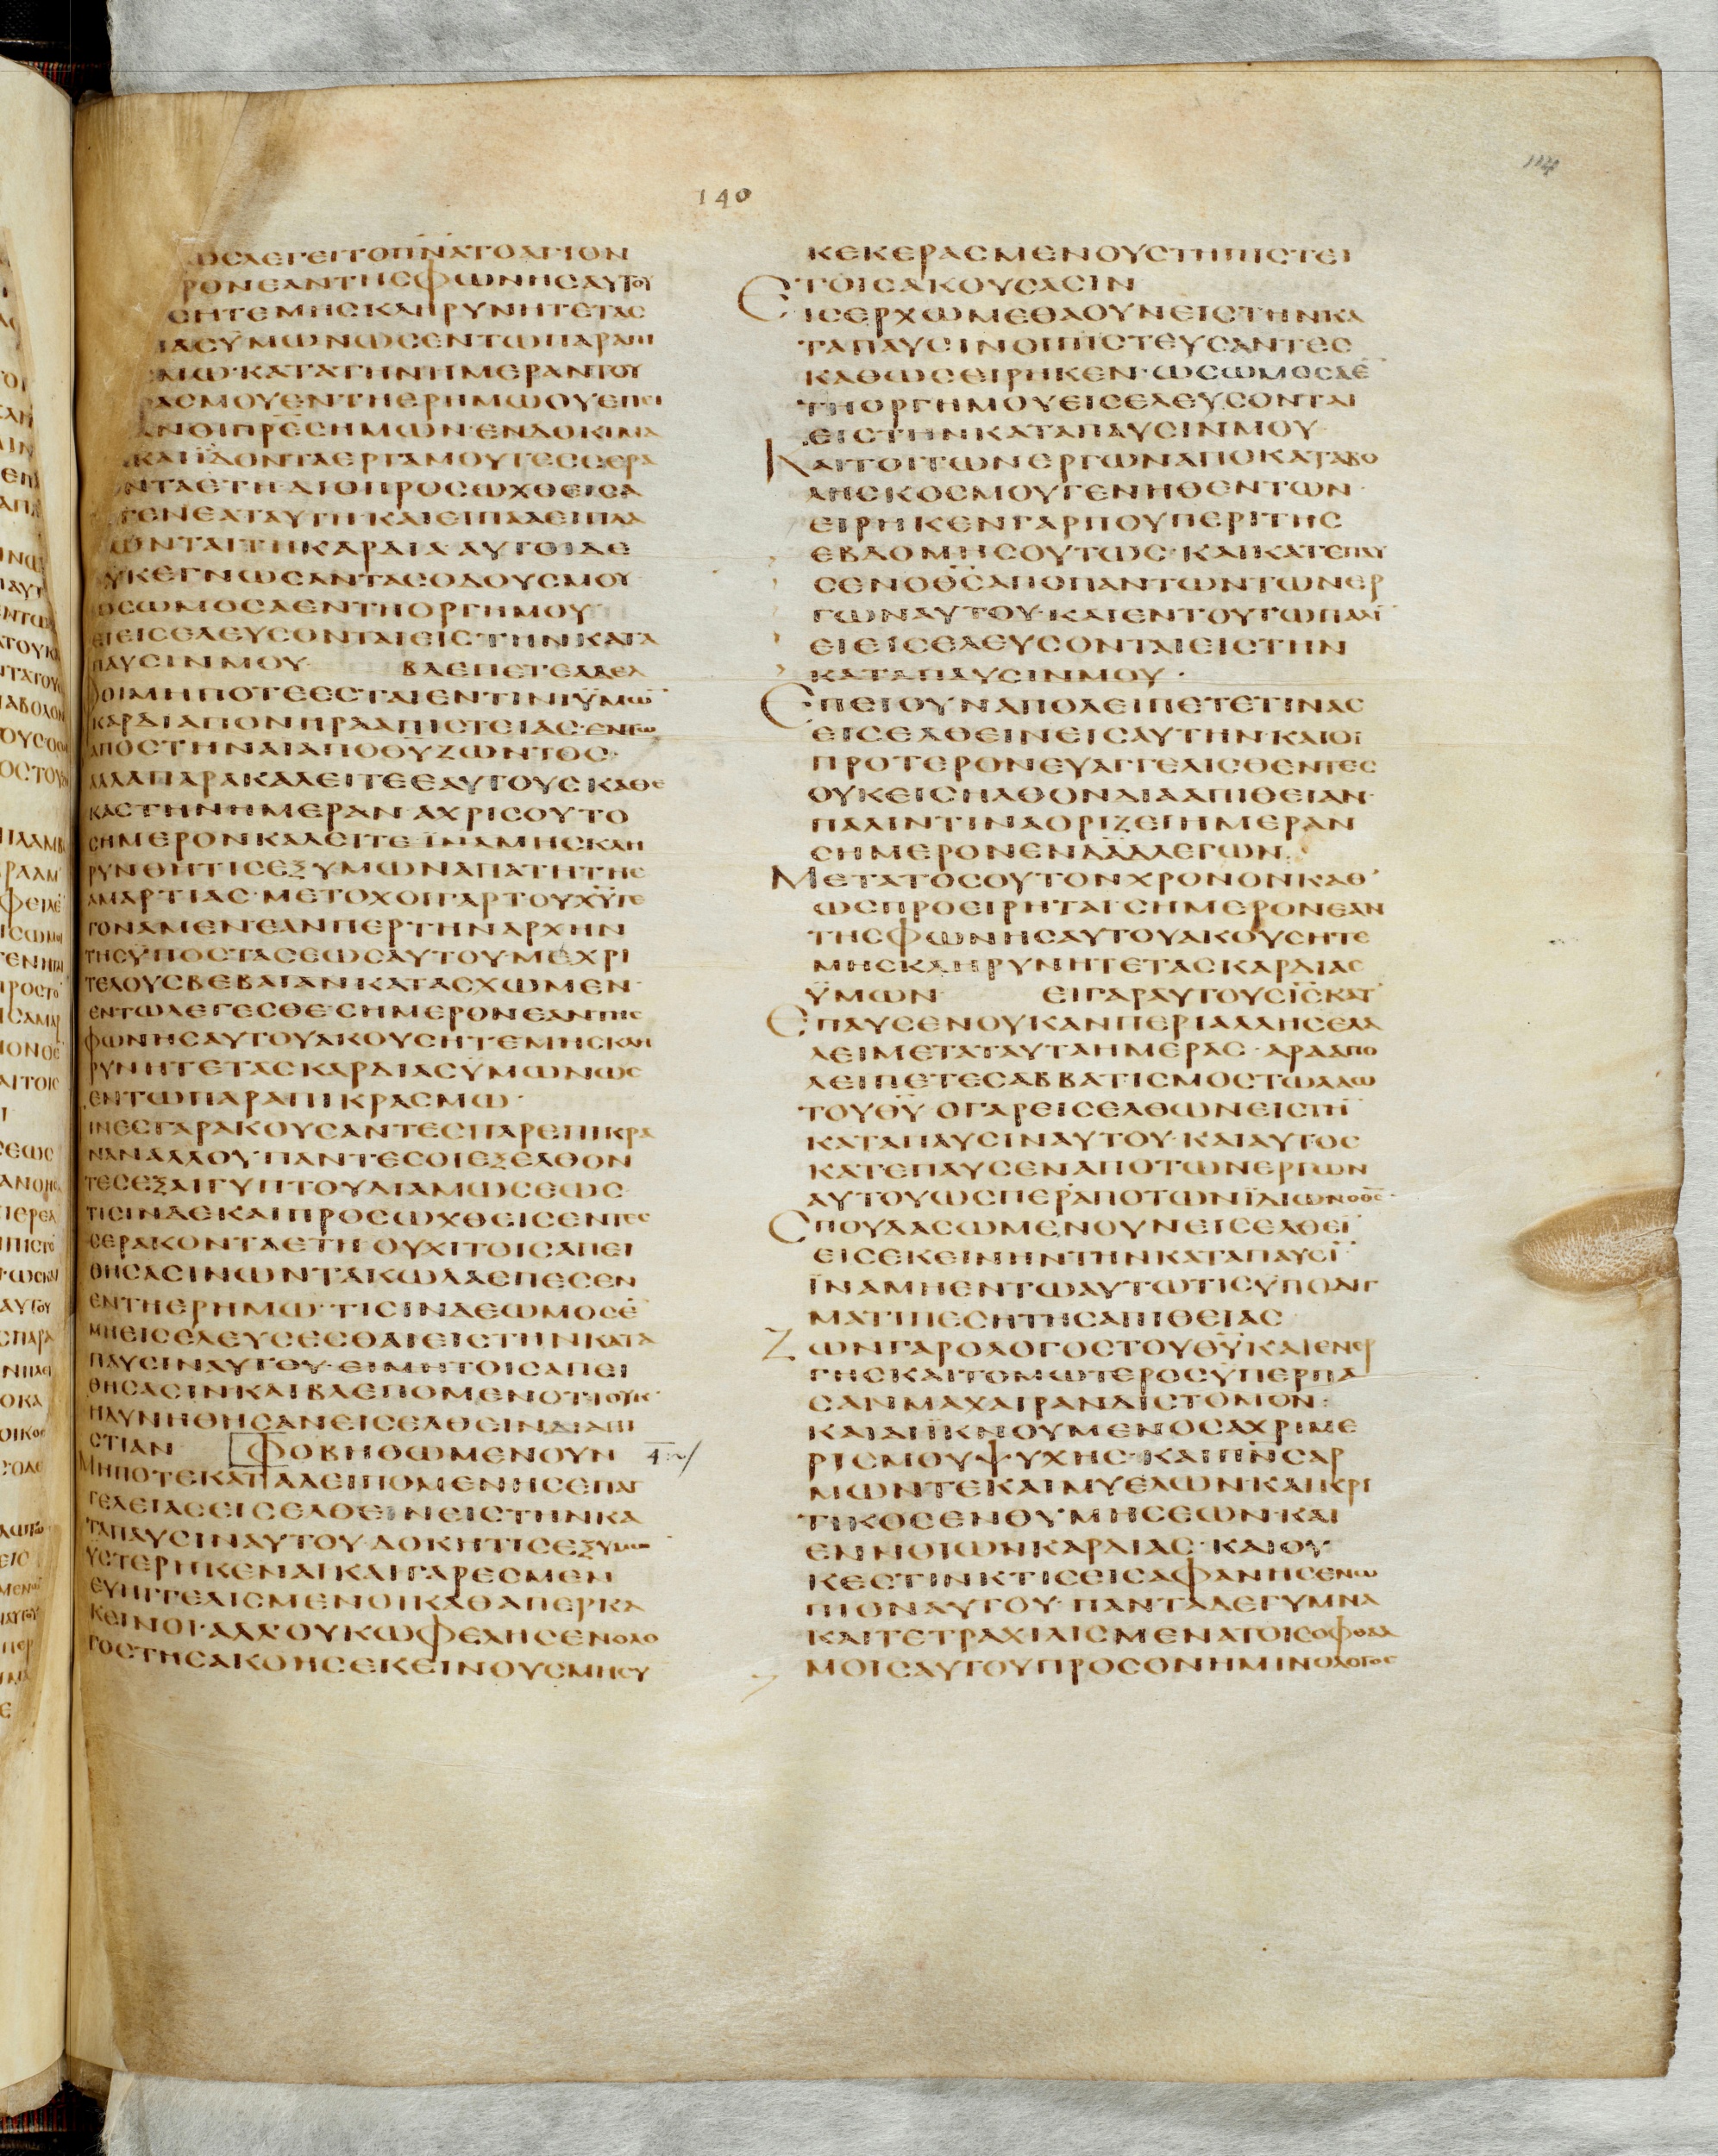 140
114
ωϲλεγειτοπ̅ν̅ατοαγιον
ρονεαντηϲφωνηϲαυτου
ϲητεμηϲκληρυνητεταϲ
ιαϲϋμωνωϲεντωπαραπι
μω·κατατηνημεραντου
αϲμουεντηερημωουεπει
ανοιπρ̅ε̅ϲημων·ενδοκιμα
καιϊδονταεργαμουτεϲϲερα
ονταετη·διοπροϲωχθειϲα
γενεαταυτηκαιειπααειπλα
ωνταιτηκαρδια·αυτοιδε
υκεγνωϲανταϲοδουϲμου
ωϲωμοϲαεντηοργημου
ειειϲελευϲονταιειϲτηνκατα
παυϲινμου· βλεπετεαδελ
φοιμηποτεεϲταιεντινιϋμω̅
καρδιαπονηρααπιϲτειαϲ·εντω
αποϲτηναιαποθ̅υ̅ζωντοϲ·
αλλαπαρακαλειτεεαυτουϲκαθε
καϲτηνημεραν·αχριϲουτο
ϲημερονκαλειτε·ϊναμηϲκλη
ρυνθητιϲεξυμωναπατητηϲ
αμαρτιαϲ·μετοχοιγαρτουχ̅υ̅γε
γοναμενεανπερτηναρχην
τηϲϋποϲταϲεωϲαυτουμεχρι
τελουϲβεβαιανκαταϲχωμεν·
εντωλεγεϲθε·ϲημερονεαντηϲ
φωνηϲαυτουακουϲητεμηϲκλη
ρυνητεταϲκαρδιαϲϋμωνωϲ
εντωπαραπικραϲμω·
τινεϲγαρακουϲαντεϲπαρεπικρα
ναναλλου·παντεϲοιεξελθον
τεϲεξαιγυπτουδιαμωϲεωϲ
τιϲινδεκαιπροϲωχθειϲεντεϲ
ϲερακονταετη·ουχιτοιϲαπει
θηϲαϲινωντακωλαεπεϲεν
εντηερημω·τιϲινδεωμοϲε̅
μηειϲελευϲεϲθαιειϲτηνκατα
παυϲιναυτου·ειμητοιϲαπει
θηϲαϲινκαιβλεπομενοτιουκ
ηδυνηθηϲανειϲελθεινδιααπι
ϲτιαν φοβηθωμενουν
Μηποτεκαταλειπομενηϲεπαγ
γελειαϲειϲελθεινειϲτηνκα
ταπαυϲιναυτου·δοκητιϲεξυμω̅
υϲτερηκεναικαιγαρεϲμεν
ευηγγελιϲμενοικαθαπερκα
κεινοι·αλλ'ουκωφεληϲενολο
γοϲτηϲακοηϲεκεινουϲμηϲυ
κεκεραϲμενουϲτηπιϲτει
τοιϲακουϲαϲιν
Ειϲερχωμεθαουνειϲτηνκα
ταπαυϲινοιπιϲτευϲαντεϲ
καθωϲειρηκεν·ωϲωμοϲαε̅
τηοργημουειϲελευϲονται
ειϲτηνκαταπαυϲινμου·
Καιτοιτωνεργωναποκαταβο
ληϲκοϲμουγενηθεντων·
ειρηκενγαρπουπεριτηϲ
εβδομηϲουτωϲ·καικατεπαυ
ϲενοθ̅ϲ̅αποπαντωντωνερ
γωναυτου·καιεντουτωπαλι̅
ειειϲελευϲονταιειϲτην
καταπαυϲινμου·
Επειουναπολειπετετιναϲ
ειϲελθεινειϲαυτην·καιοι
προτερονευαγγελιϲθεντεϲ
ουκειϲηλθονδιααπιθειαν·
παλιντιναοριζειημεραν
ϲημερονενδαδλεγων·
Μετατοϲουτονχρονονκαθ'
ωϲπροειρηται·ϲημερονεαν
τηϲφωνηϲαυτουακουϲητε
μηϲκληρυνητεταϲκαρδιαϲ
ϋμων· ειγαραυτουϲι̅ϲ̅κατ
Επαυϲενουκανπεριαλληϲελα
λειμεταταυταημεραϲ·αρααπο
λειπετεϲαββατιϲμοϲτωλαω
τουθ̅υ̅·ογαρειϲελθωνειϲτη̅
καταπαυϲιναυτου·καιαυτοϲ
κατεπαυϲεναποτωνεργων
αυτουωϲπεραποτωνϊδιωνοθ̅ϲ̅·
Ϲπουδαϲωμενουνειϲελθει̅
ειϲεκεινηντηνκαταπαυϲι̅
ϊναμηεντωαυτωτιϲϋποδιγ
ματιπεϲητηϲαπιθειαϲ
Ζωνγαρολογοϲτουθ̅υ̅καιενερ
γηϲκαιτομωτεροϲϋπερπα
ϲανμαχαιρανδιϲτομον·
καιδιϊκνουμενοϲαχριμε
ριϲμουψυχηϲ·καιπ̅ν̅ϲαρ
μωντεκαιμυελων·καικρι
τικοϲενθυμηϲεων·και
εννοιωνκαρδιαϲ·καιου
κεϲτινκτιϲειϲαφανηϲενω
πιοναυτου·πανταδεγυμνα
καιτετραχιλιϲμενατοιϲοφθαλ
μοιϲαυτουπροϲονημινολογοϲ